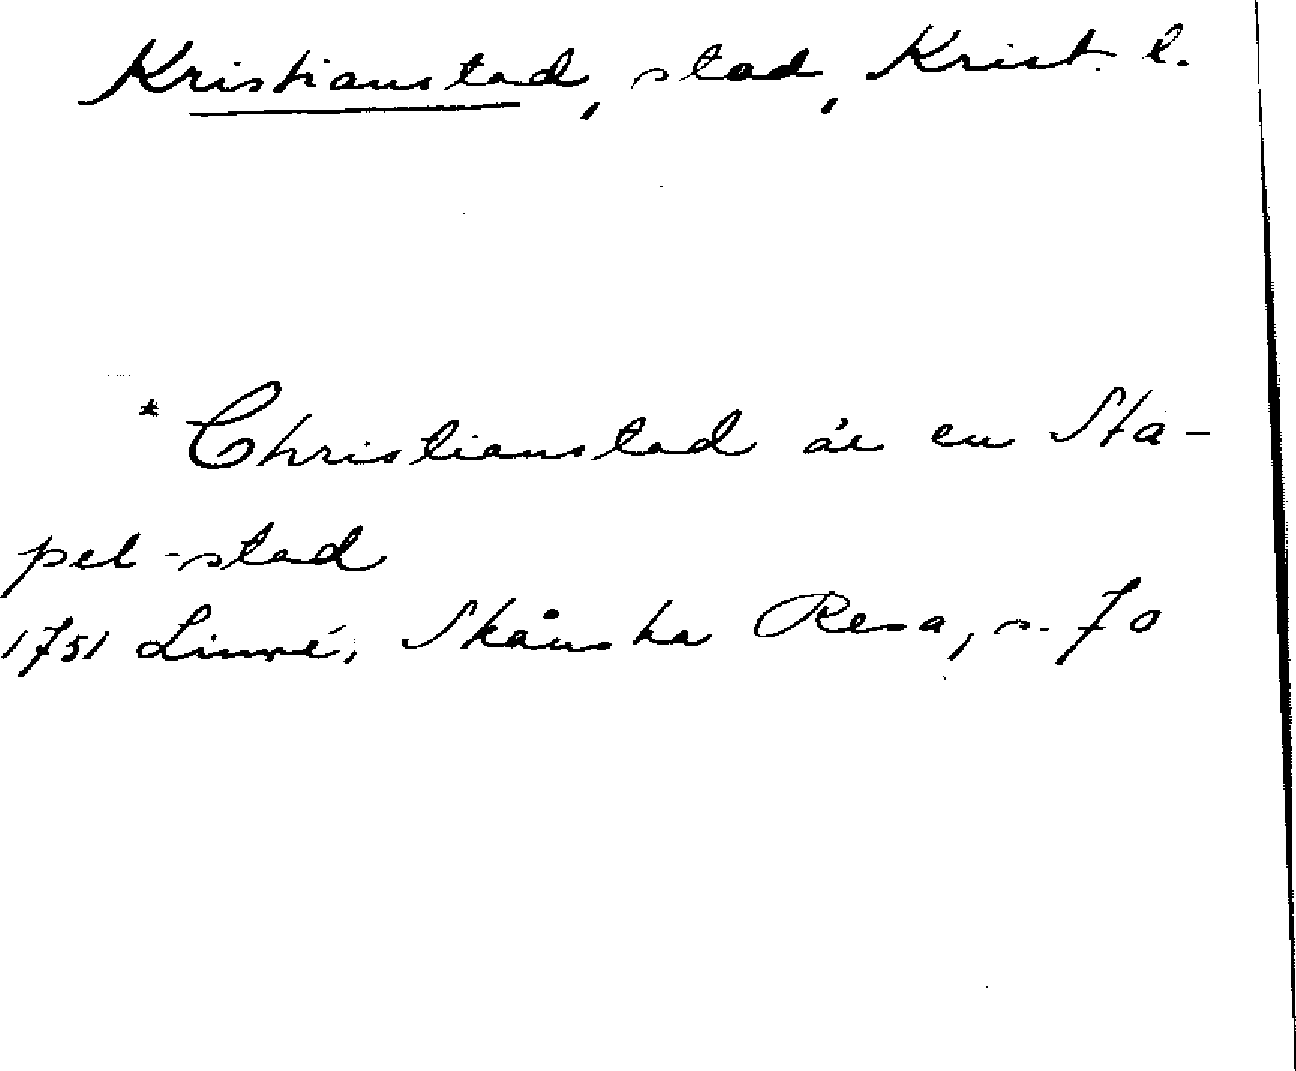 Kristianstad, stad, Krist. l.
* Christianstad är en Sta-
pel-stad
1751 Linné, Skånska Resa, s. 70